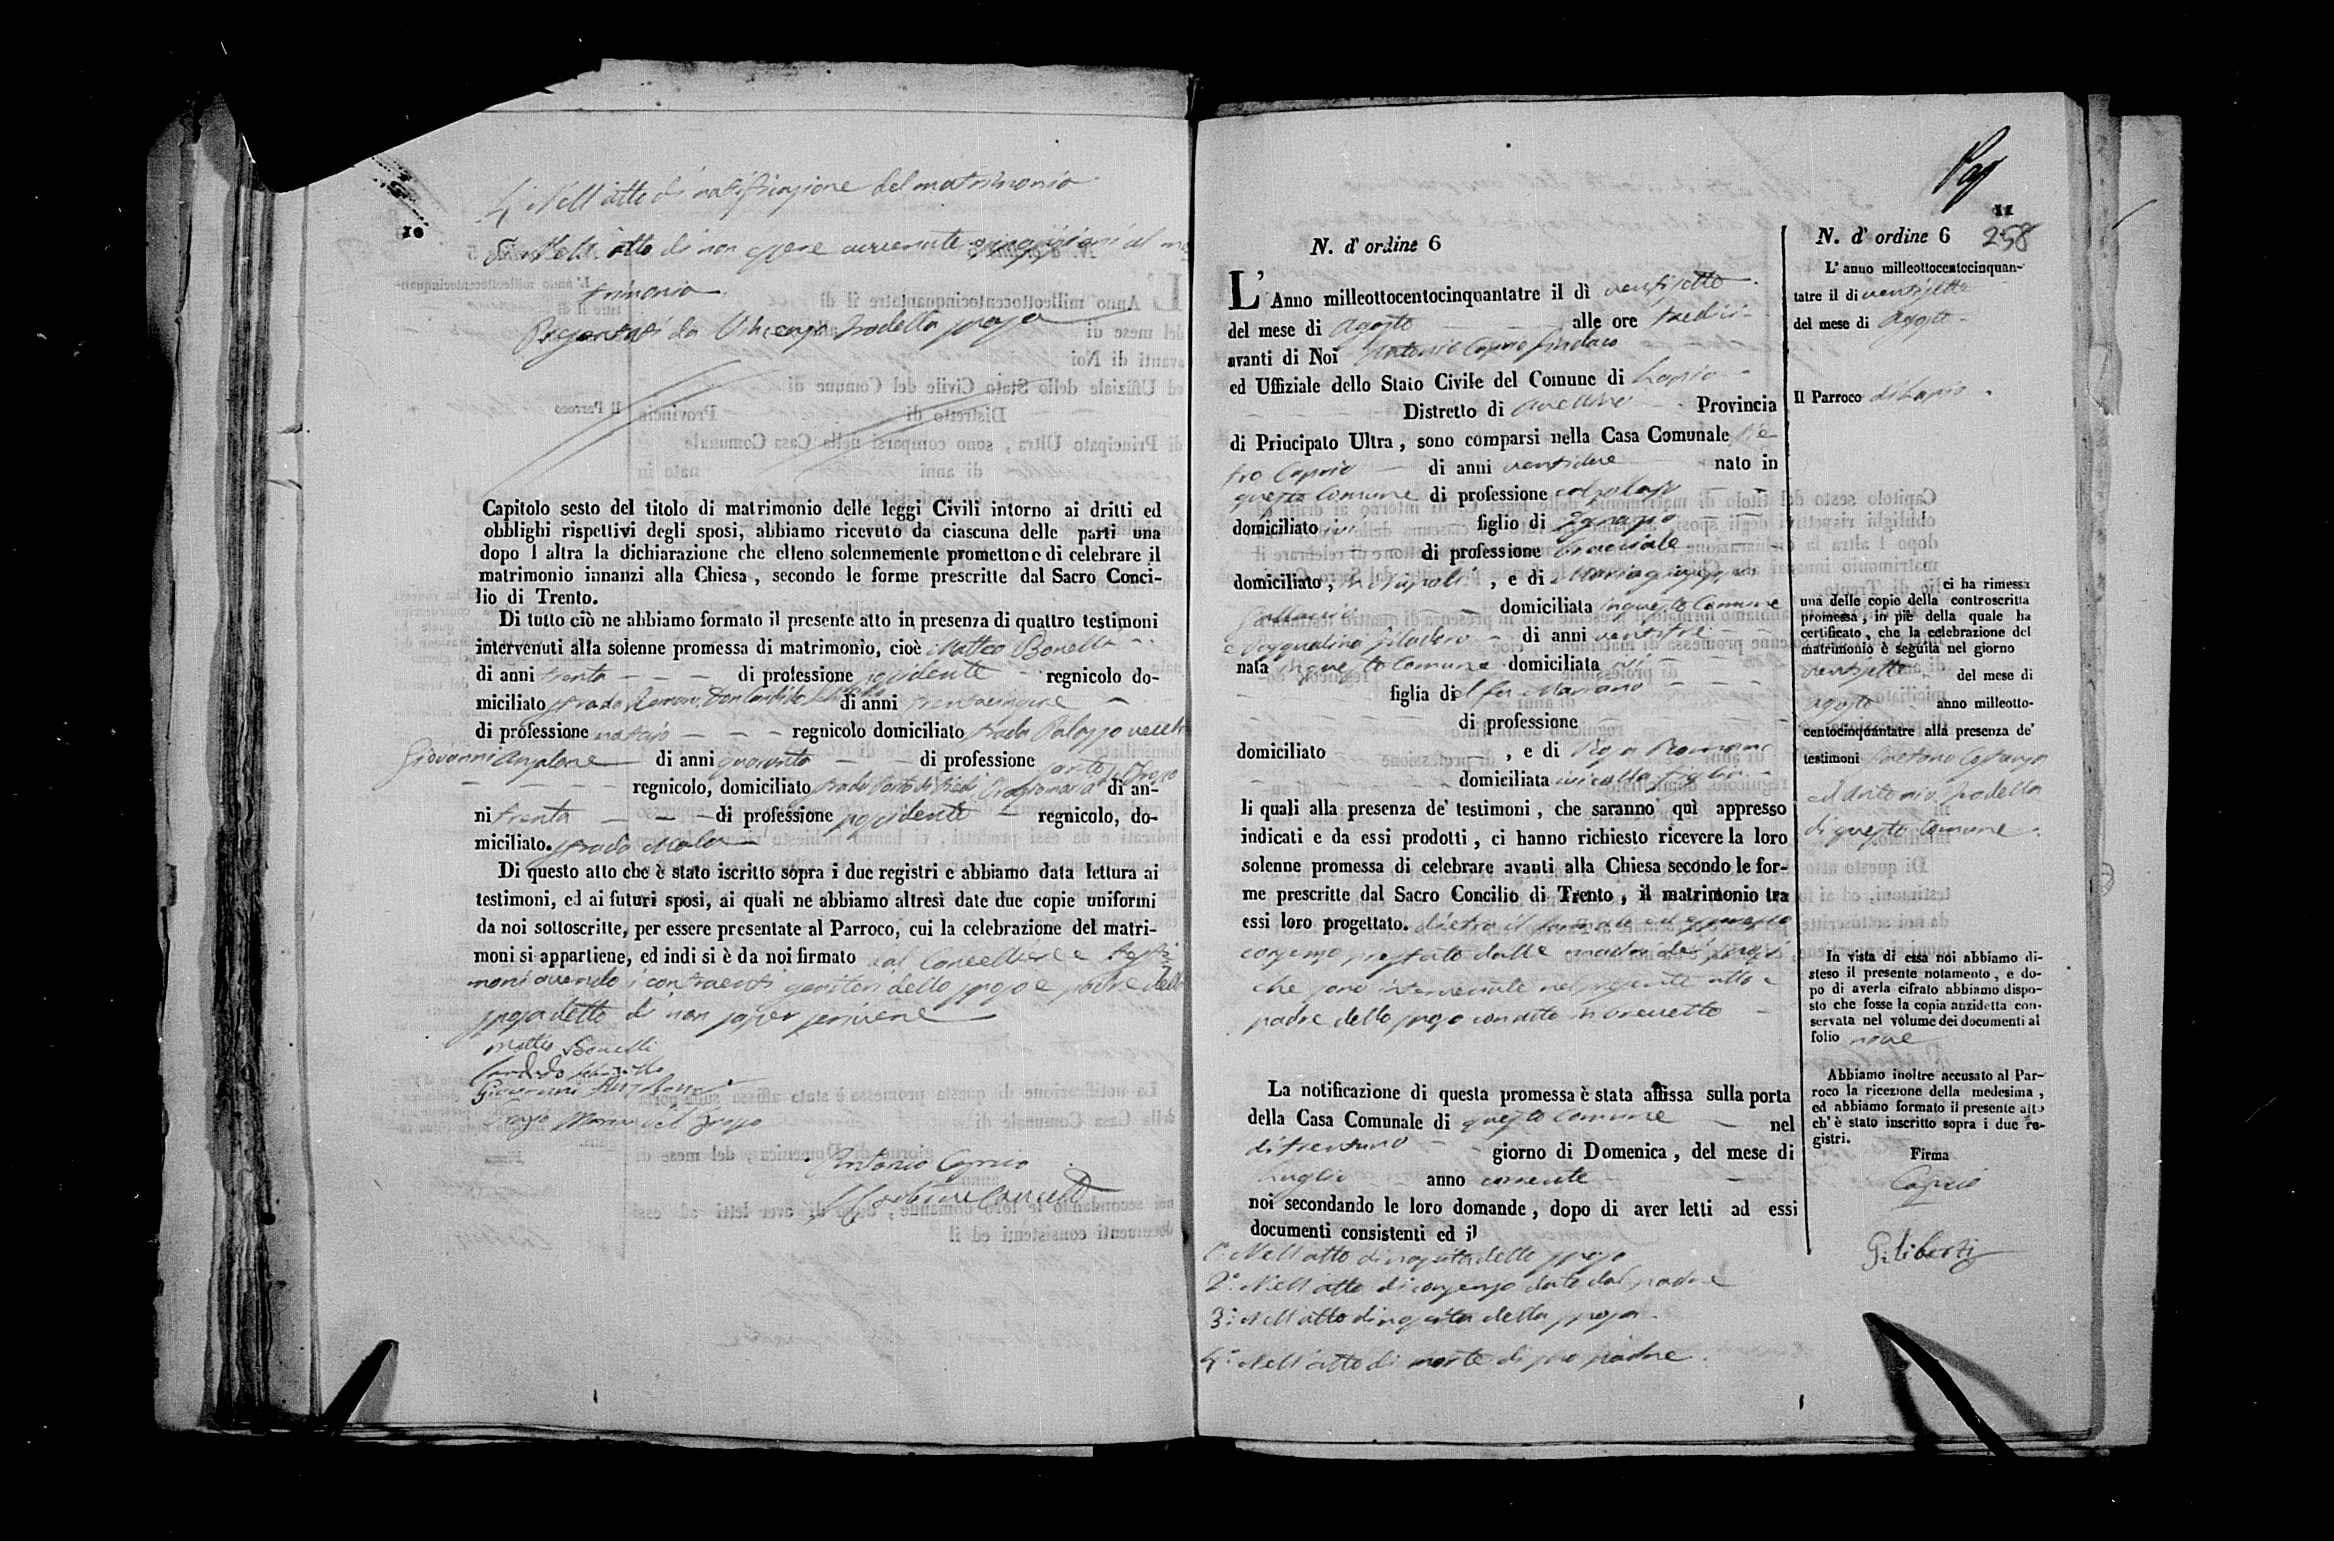 4. Nell'atto di ratificazione del matrimonio
10
5. Nell'atto di non essere avvenute opposizioni al ma
trimonio
Presentati da Vincenza Iradella sposa
Capitolo sesto del titolo di matrimonio delle leggi Civili intorno ai dritti ed
obblighi rispettivi degli sposi, abbiamo ricevuto da ciascuna delle parti una
dopo l altra la dichiarazione che elleno solennemente promettono di celebrare il
matrimonio innanzi alla Chiesa, secondo le forme prescritte dal Sacro Conci-
lio di Trento.
Di tutto ciò ne abbiamo formato il presente atto in presenza di quattro testimoni
intervenuti alla solenne promessa di matrimonio, cioè Matteo Bonelli
di anni trenta di professione possidente regnicolo do-
miciliato strada Don Candido di anni trentacinque
di professione notaio regnicolo domiciliato strada Palazzo vecchio
Giovanni Anzalone di anni quaranta di professione sarto
regnicolo, domiciliato strada di an-
ni trenta di professione possidente regnicolo, do-
miciliato. strada
Di questo atto che è stato iscritto sopra i due registri e abbiamo data lettura ai
testimoni, ed ai futuri sposi, ai quali ne abbiamo altresì date due copie uniformi
da noi sottoscritte, per essere presentate al Parroco, cui la celebrazione del matri-
moni si appartiene, ed indi si è da noi firmato dal Cancelliere e testi
moni avendo i contraenti genitori dello sposo e padre della
sposa detto di non saper scrivere
Matteo Bonelli
Candido
Giovanni Anzalone
Antonio Caprio
N. d' ordine 6
L' Anno milleottocentocinquantatre il dì ventisette
del mese di Agosto alle ore tredici
avanti di Noi Antonio Caprio Sindaco
ed Uffiziale dello Stato Civile del Comune di Lapio
Distretto di Avellino Provincia
di Principato Ultra, sono comparsi nella Casa Comunale Pie
tro Caprio di anni ventidue nato in
questo Comune di professione calzolajo
domiciliato ivi figlio di Ignazio
di professione bracciale
domiciliato, in Napoli, e di Mariagiuseppa
domiciliata in questo Comune
e Pasqualina di anni ventitre
nata in questo Comune domiciliata ivi
figlia di el fu Mariano
di professione
domiciliato , e di Rosa Romano
domiciliata ivi colla figlia
li quali alla presenza de' testimoni, che saranno quì appresso
indicati e da essi prodotti, ci hanno richiesto ricevere la loro
solenne promessa di celebrare avanti alla Chiesa secondo le for-
me prescritte dal Sacro Concilio di Trento, il matrimonio tra
essi loro progettato. dietro il formale ed espresso
consenso prestato dalle madri dei sposi
che sono intervenute nel presente atto e
padre dello sposo condito in brevetto
La notificazione di questa promessa è stata affissa sulla porta
della Casa Comunale di questo Comune nel
dì trentuno giorno di Domenica, del mese di
Luglio anno corrente
noi secondando le loro domande, dopo di aver letti ad essi
documenti consistenti ed il
1° Nell'atto di nascita dello sposo
2° Nell'atto di consenso dato dal padre
3° Nell'atto di nascita della sposa
4° Nell'atto di morte di suo padre
11
N. d' ordine 6 258
L' anno milleottocentocinquan-
tatre il dì ventisette
del mese di Agosto
Il Parroco di Lapio
ci ha rimessa
una delle copie della controscritta
promessa, in piè della quale ha
certificato, che la celebrazione del
matrimonio è seguita nel giorno
ventisette del mese di
Agosto anno milleotto-
centocinquantatre alla presenza de'
testimoni Gaetano Costanzo
ed Antonio
di questo Comune.
In vista di essa noi abbiamo di-
steso il presente notamento, e do-
po di averla cifrato abbiamo dispo-
sto che fosse la copia anzidetta con-
servata nel volume dei documenti al
folio nove
Abbiamo inoltre accusato al Par-
roco la ricezione della medesima,
ed abbiamo formato il presente atto
ch' è stato inscritto sopra i due re-
gistri.
Firma
Caprio
Giliberti